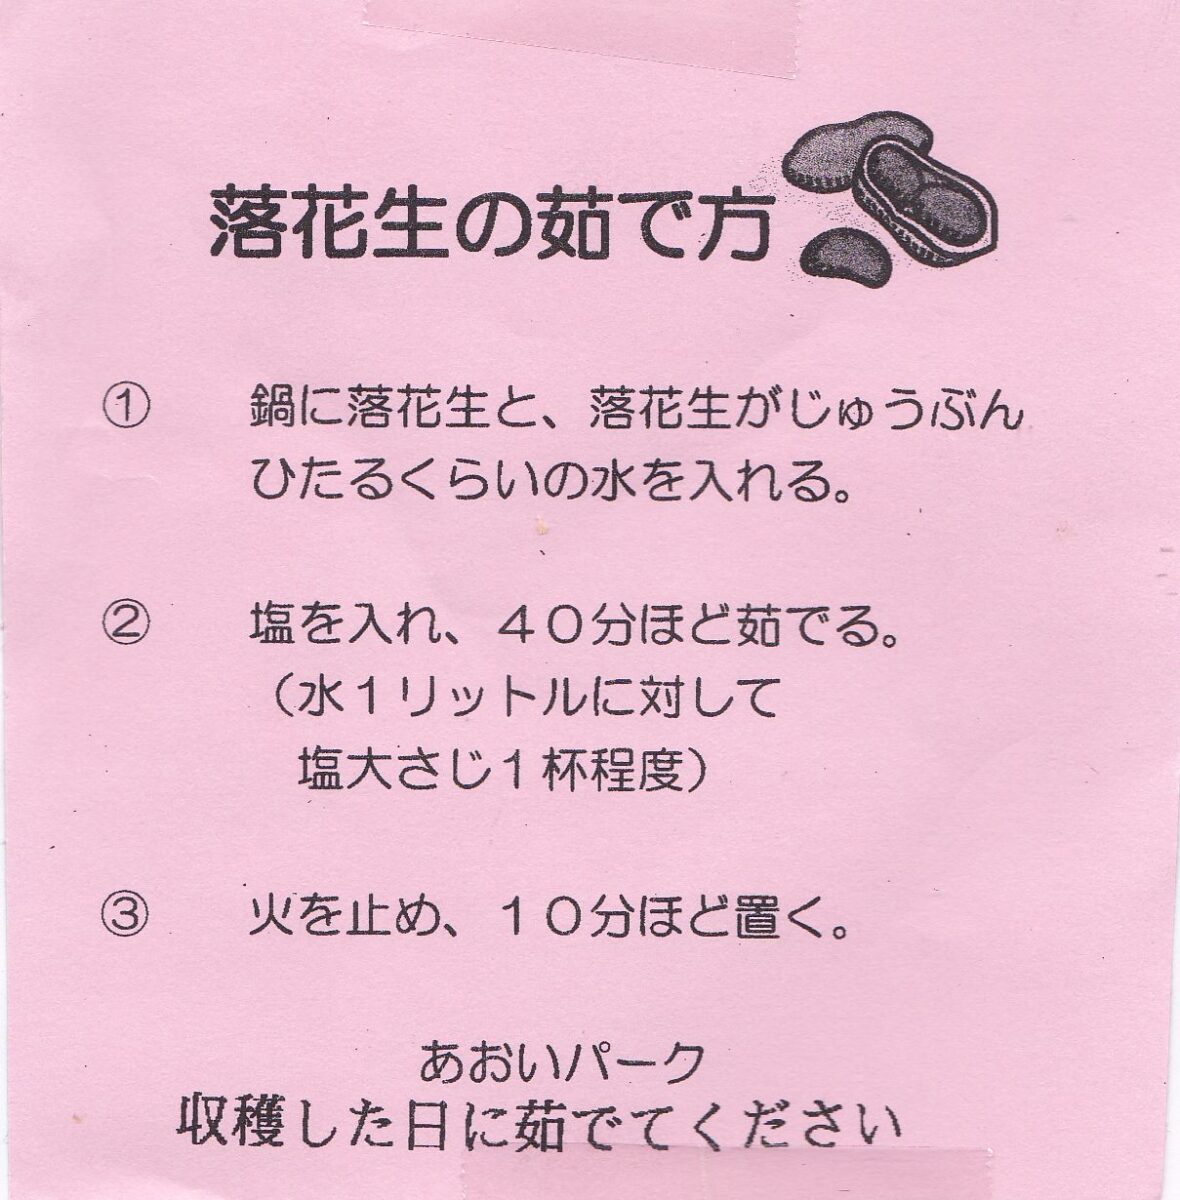 落花生の茹で方
① 鍋に落花生と、落花生がじゅうぶん
ひたるくらいの水を入れる。
② 塩を入れ、４０分ほど茹でる。
（水１リットルに対して
塩大さじ１杯程度）
③ 火を止め、１０分ほど置く。
あおいパーク
収穫した日に茹でてください